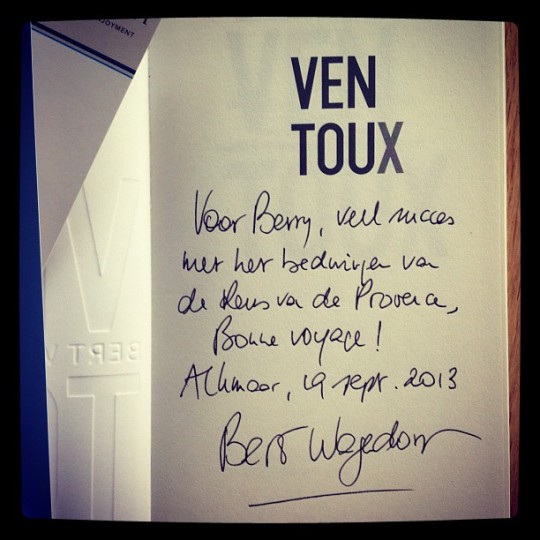 OYMENT
VEN
TOUX
Voor Berry, veel succes
met het bedwingen van
de Reus van de Provence,
Bonne voyage!
Alkmaar, 19 sept. 2013
Bert Wagendorp
BERT V